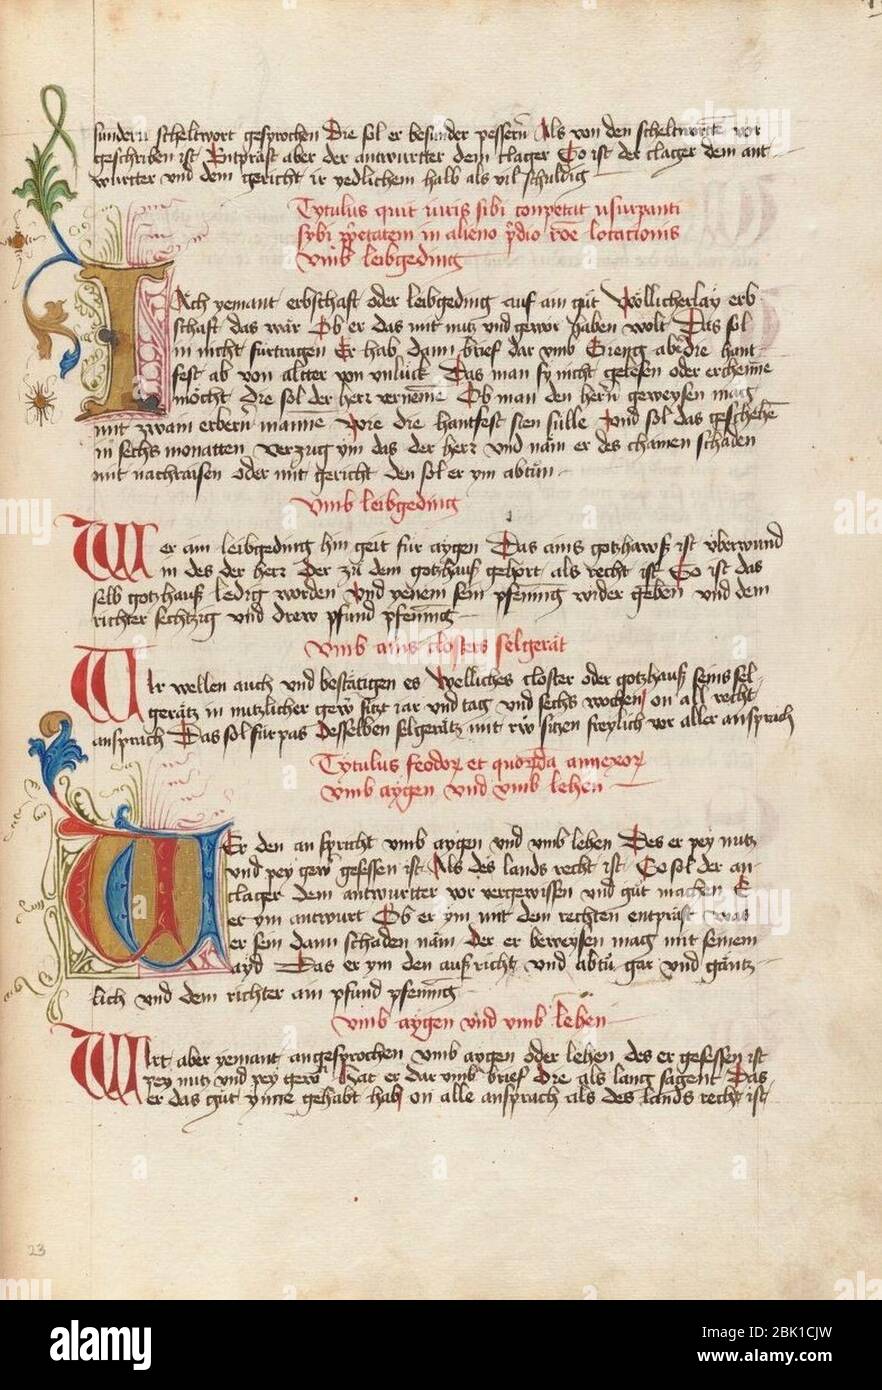 sundern scheltwort gesprochen Die sol er besunder pessern Als von den scheltwortn̄ vor
geschriben ist Entpräst aber der antwurtter dem clager So ist der clager dem ant
wurtter vnd dem gericht ir yedlichem halb als vil schuldig
Tytulus quit iuris sibi conpetat vsurpanti
syb̄i in alieno p̄dio rōe locacionis
vmb leibgeding
IAch yemant erbschaft oder leibgeding auf aim gůt Wöllicherlay erb
schaft das wär Ob er das mit nutz vnd gewer haben wolt Das sol
in nicht fürtragen Er hab dann brief dar vmb Gieng aber die hant
fest ab von altter von vnlück Das man sy nicht gelesen oder erchenne
möcht Die sol der herr vernemē Ob man den hern̄ geweysen mag
mit zwain erbern̄ manne Wie die hantfest sien sülle Vnd sol das geschehn̄
in sechs monatten verzug ym das der herr vnd näm er des chainen schaden
mit nachraisen oder mit gericht den sol er ym abtůn
vmb leibgeding
Wer aim leibgeding hin geit für aygen Das ains gotzhawß ist vberwund
in des der herr Der zu dem gotzhauß gehört als recht ist So ist das
selb gotzhauß ledig worden Vnd yenem sein pfenning wider geben vnd dem
richter sechtzig vnd drew pfund pfenning
vmb ains closters selgerät
WIr wellen auch vnd bestätigen es Welliches closter oder gotzhauß seins sel
gerätz in nutzlicher gew̄ sitzt iar vnd tag vnd sechs wochen on all recht
ansprach Das sol fürpas Desselben selgerätz mit rw̄ sitzen freylich vor aller ansprach
Tytulus feodor et quorūda annexor
vmb aygen vnd vmb lehen
WEr den an spricht vmb aygen vnd vmb lehen Des er pey nutz
vnd pey gew̄ gesessen ist Als des lands recht ist So sol der an
clager dem antwurtter vor vergewissen vnd gůt machen E
er ym antwurt Ob er ym mit dem rechten entpräst was
er sein dann schaden näm der er beweysen mag mit seinem
ayd Das er ym den außricht vnd abtů gar vnd gäntz
lich vnd dem richter ain pfund pfenning
vmb aygen vnd vmb lehen
WIrt aber yemant angesprochen vmb aygen oder lehen des er gesessen ist
pey nutz vnd pey gew̄ Hat er dar vmb brief Die als lang sagent Das
er das gůt ynne gehabt hab on alle ansprach als des lands recht ist
23
alamy
Image ID: 2BK1CJW
www.alamy.com